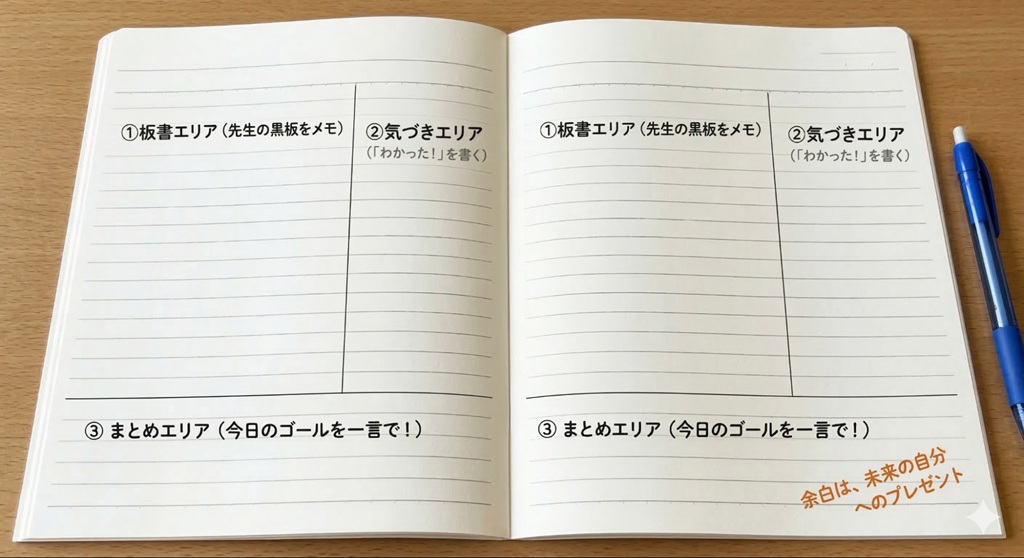 ①板書エリア（先生の黒板をメモ）
②気づきエリア
（「わかった！」を書く）
③ まとめエリア（今日のゴールを一言で！）
①板書エリア（先生の黒板をメモ）
②気づきエリア
（「わかった！」を書く）
③ まとめエリア（今日のゴールを一言で！）
余白は、未来の自分
へのプレゼント